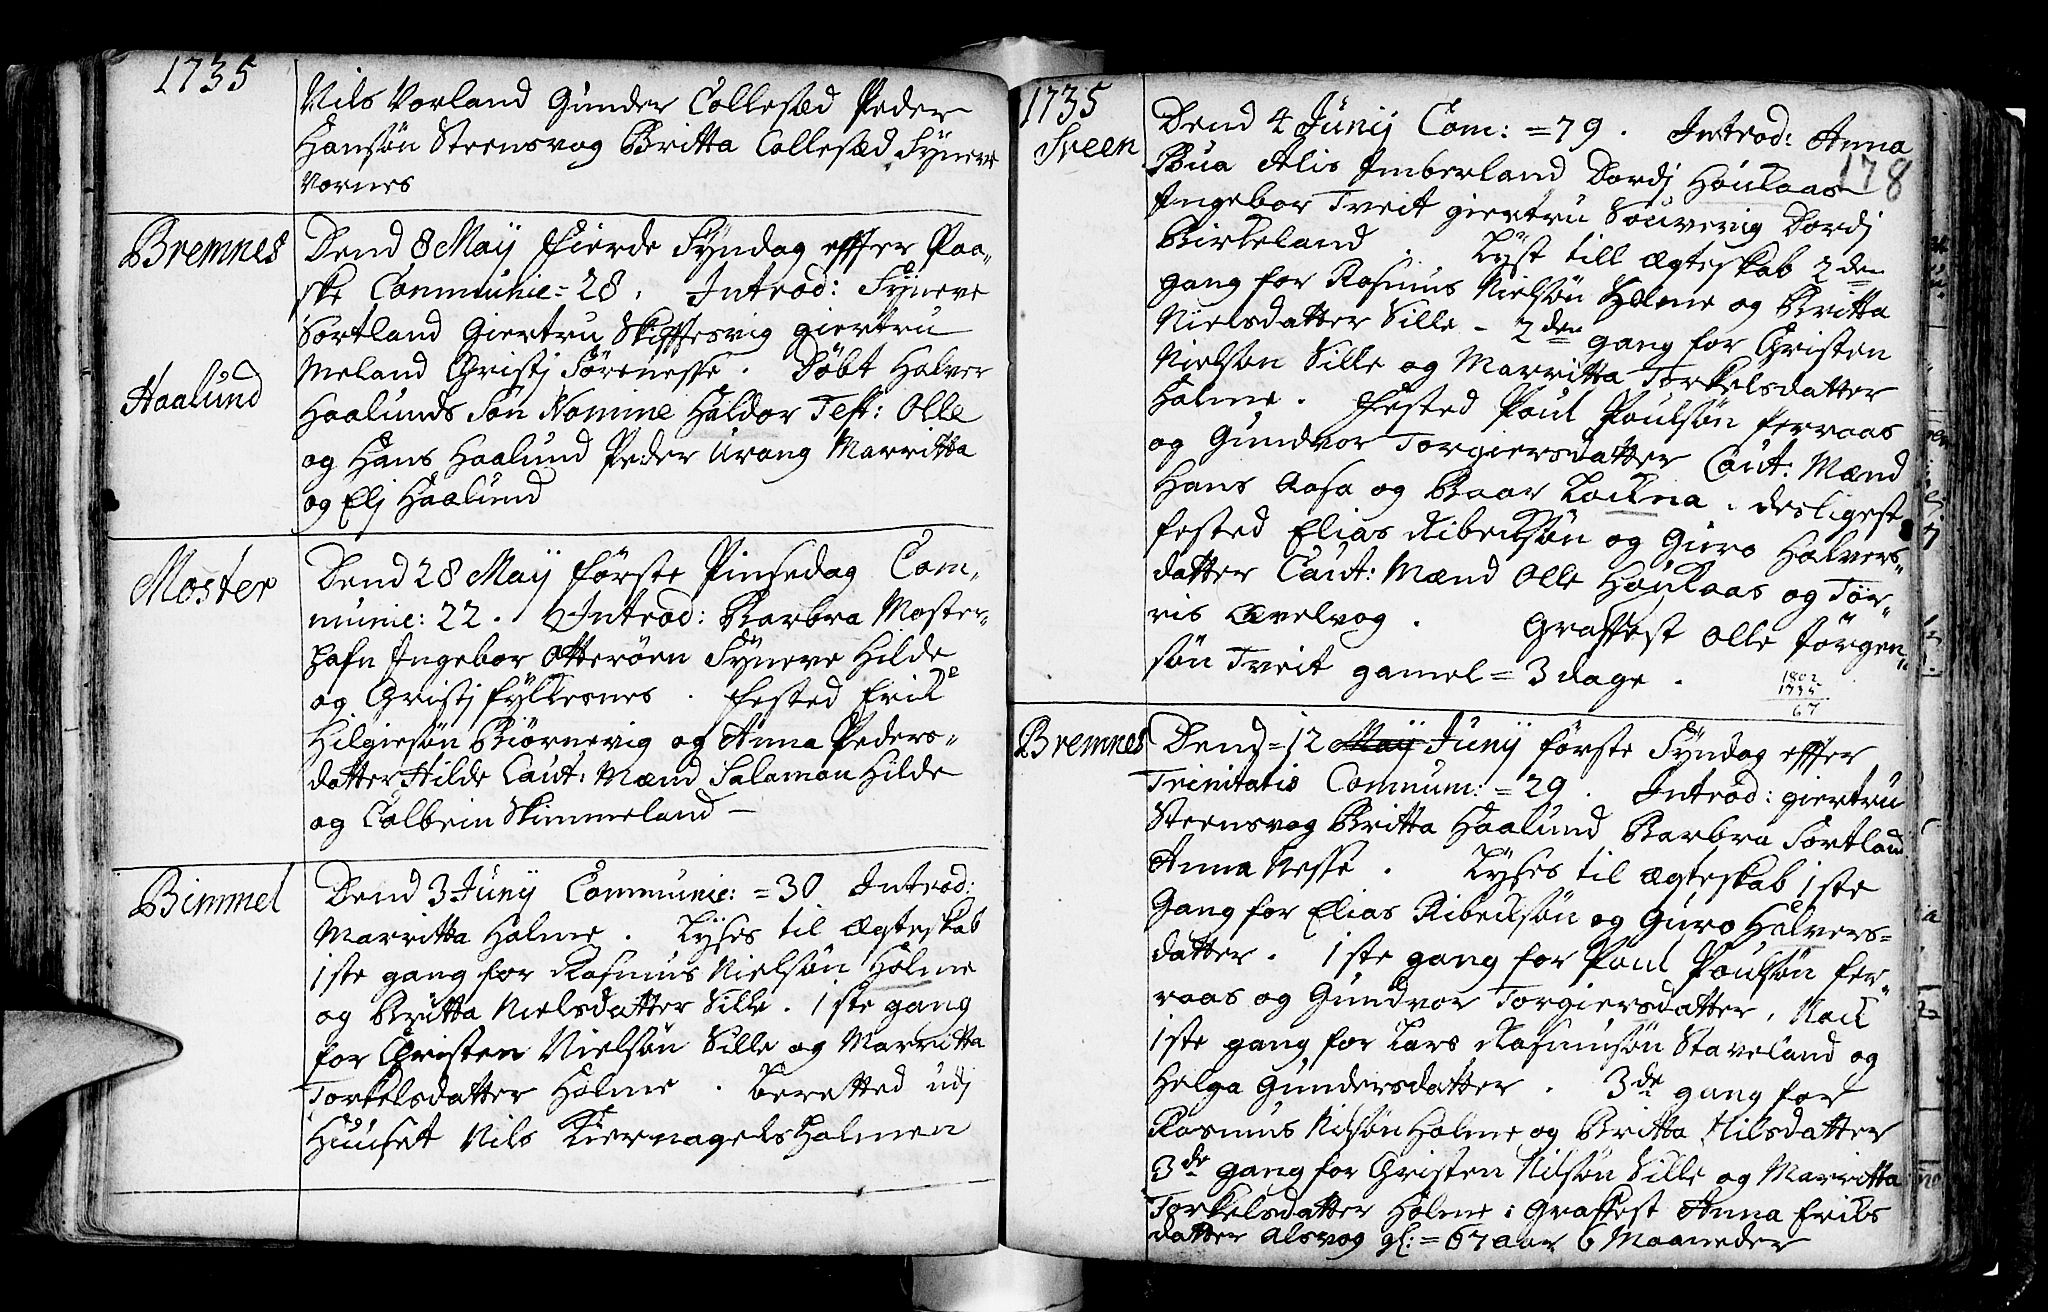 1735
Nils Vorland Gunder Collesæd Peder
Hansøn Steensvog Britta Collesæd Syneve
Vornes
Bremnes
Dend 8 Maÿ fierde Sÿndag effter Paa-
ske Communic= 28. Introd: Sÿneve
Sortland Giertru Skiffesvig giertru
Meland Christj Sørenesse. Døbt Halver
Haalund
Haalunds Søn Nomine Haldor Test: Olle
og Hans Haalund Peder Urang Marritta
og Elj Haalund
Moster
Dend 28 Maÿ første Pinsedag Com-
munic: 22. Introd: Barbra Moster-
hafn Ingebor Otterøen Sÿneve Hilde
og Christj fÿlkesnes. fested Erik
Hilgiesøn Biørnevig og Anna Peders-
datter Hilde Caut: Mænd Salamon Hilde
og Colbein Skimmeland —
Bimmel
Dend 3 Junÿ Communic: = 30 Introd:
Marritta Holme. Lÿses til Ægteskab
1ste gang for Rasmus Nielsøn Holme
og Britta Nielsdatter Sille. 1ste gang
for Christen Nielsøn Sille og Marritta
Torkelsdatter Holme. beretted udj
Huuset Nils Kiernagels Holmen
1735
178
Sveen
Dend 4 Junij Com: = 79. Introd: Anna
Bua Alis Imberland Dordj Houkaas
Ingebor Tveit giertru Souverig Dordj
Birkeland. Lÿst till Ægteskab 2den
gang for Rasmus Nielsøn Holme og Britta
Nielsdatter Sille - 2den gang for Christen
Nielsøn Sille og Marritta Torkelsdatter
Holme. fested Poul Poulsøn ferraas
og Gundvor Torgiersdatter Caut: Mænd
Hans Aasa og Baar Lockna. desligest
fested Elias Ribecksøn og Guro Halvers-
datter Caut: Mænd Olle Houkaas og Tor-
ris Ævelvog. Graffest Olle Jørgen-
søn Tveit gamel = 3 dage.
1802
1735
67
Bremnes
Dend = 12 Maÿ Junÿ første Sÿndag effter
Trinitatis Commum: = 29. Introd: giertru
Steensvog Britta Haalund Barbra Sortland
Anna Nesse. Lÿses til Ægteskab 1ste
Gang for Elias Ribecksøn og Guro Halvers=
datter. 1ste gang for Poul Poulsøn fer-
raas og Gundvor Torgiersdatter. Nock
1ste gang for Lars Rasmusøn Staveland og
Helga Gundersdatter. 3de gang for
Rasmus Nilsøn Holme og Britta Nilsdatter
3de gang for Christen Nilsøn Sille og Marritta
Torkelsdatter Holme: Graffest Anna Eriks
datter Alsvog gl: = 67 aar 6 Maaneder